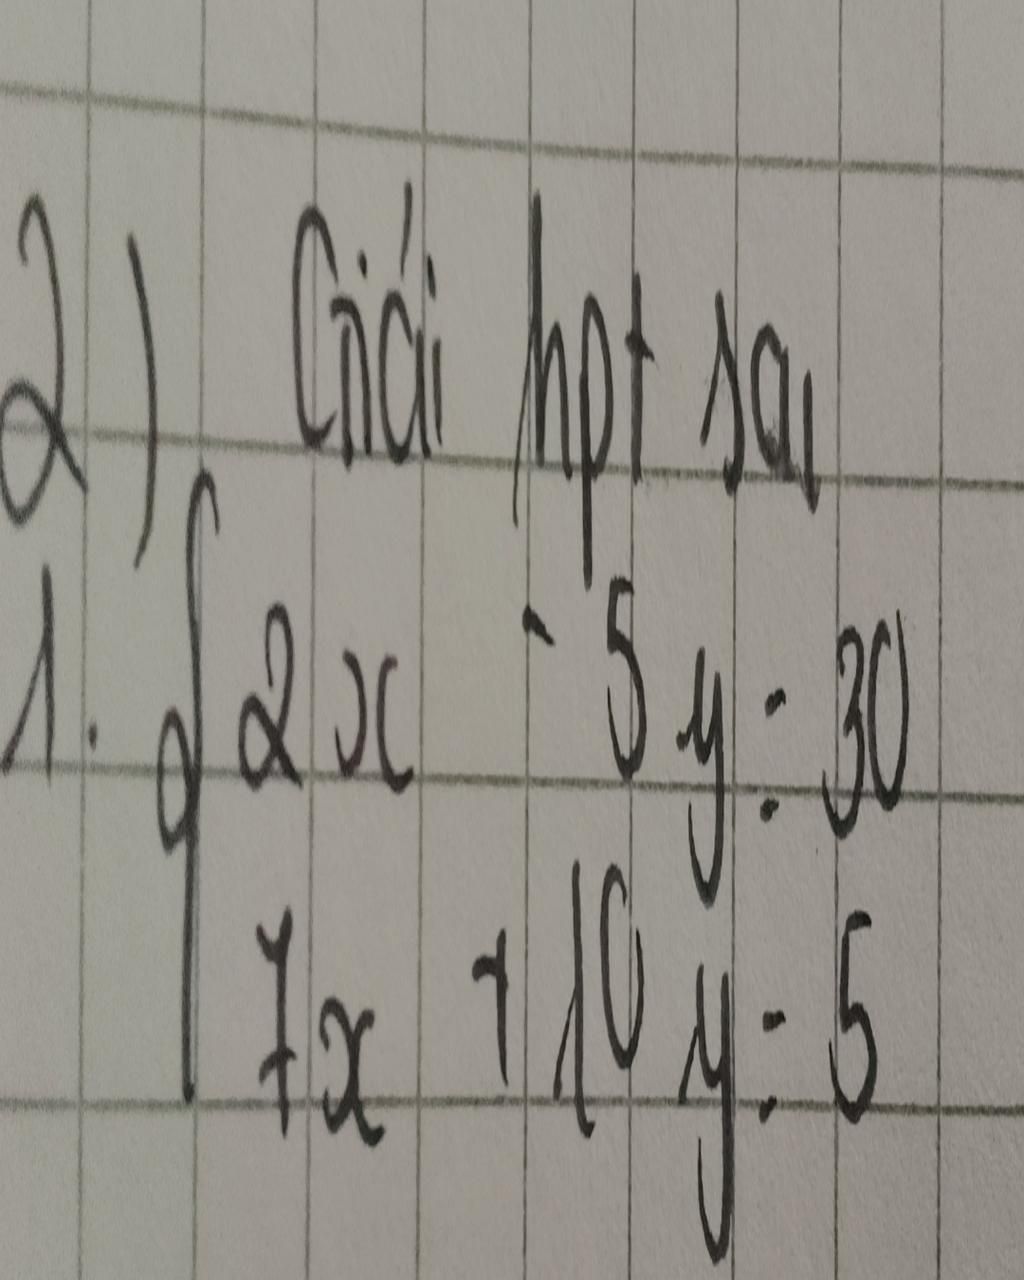 2) Giải hpt sau
1. { 2x - 5y = 30
7x + 10y = 5